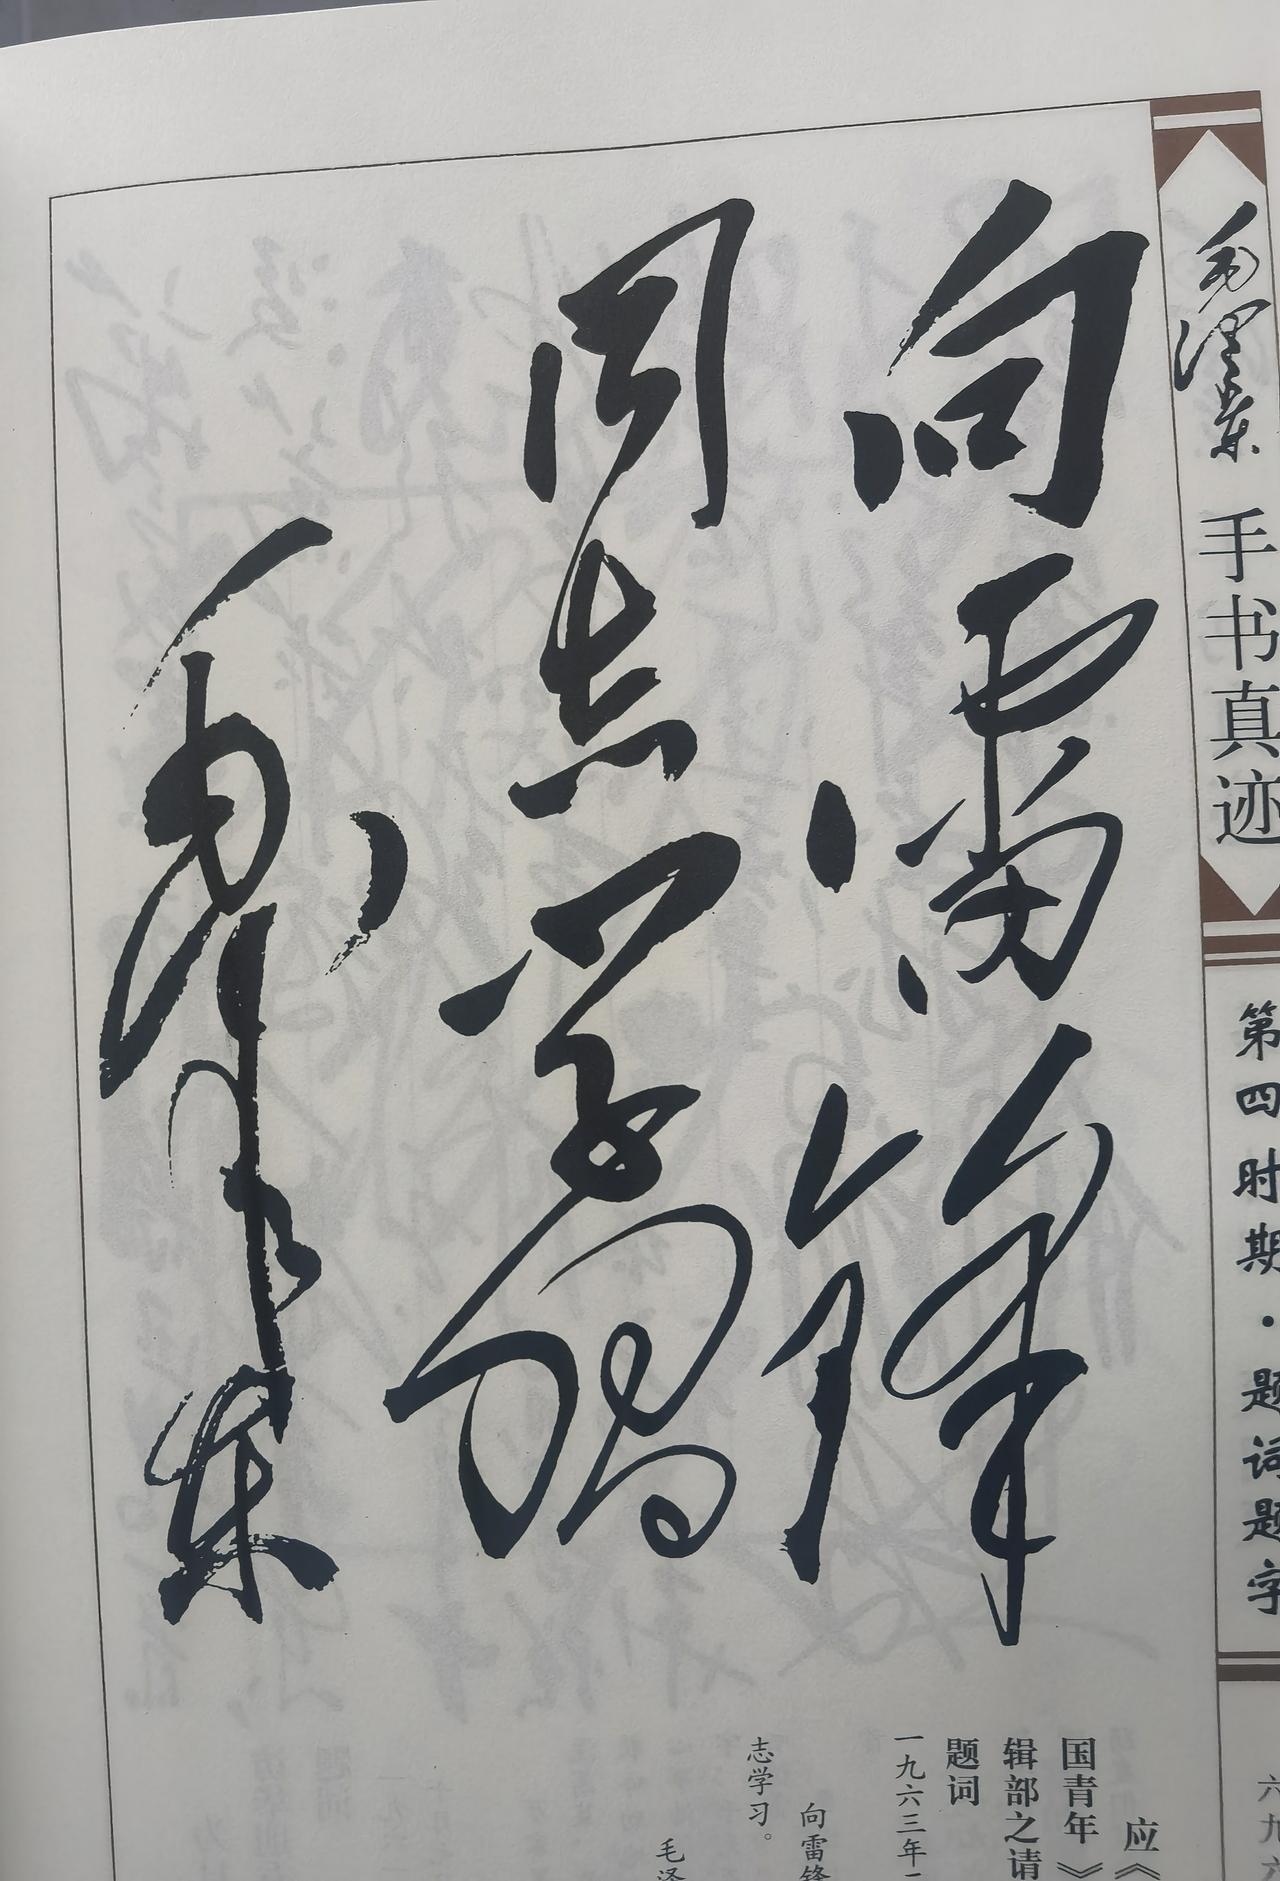 毛泽东 手书真迹
第四时期·题词题字
向雷锋
同志学习
毛泽东
应《
国青年》
辑部之请
题词
一九六三年二
向雷锋
志学习。
毛泽
六九六